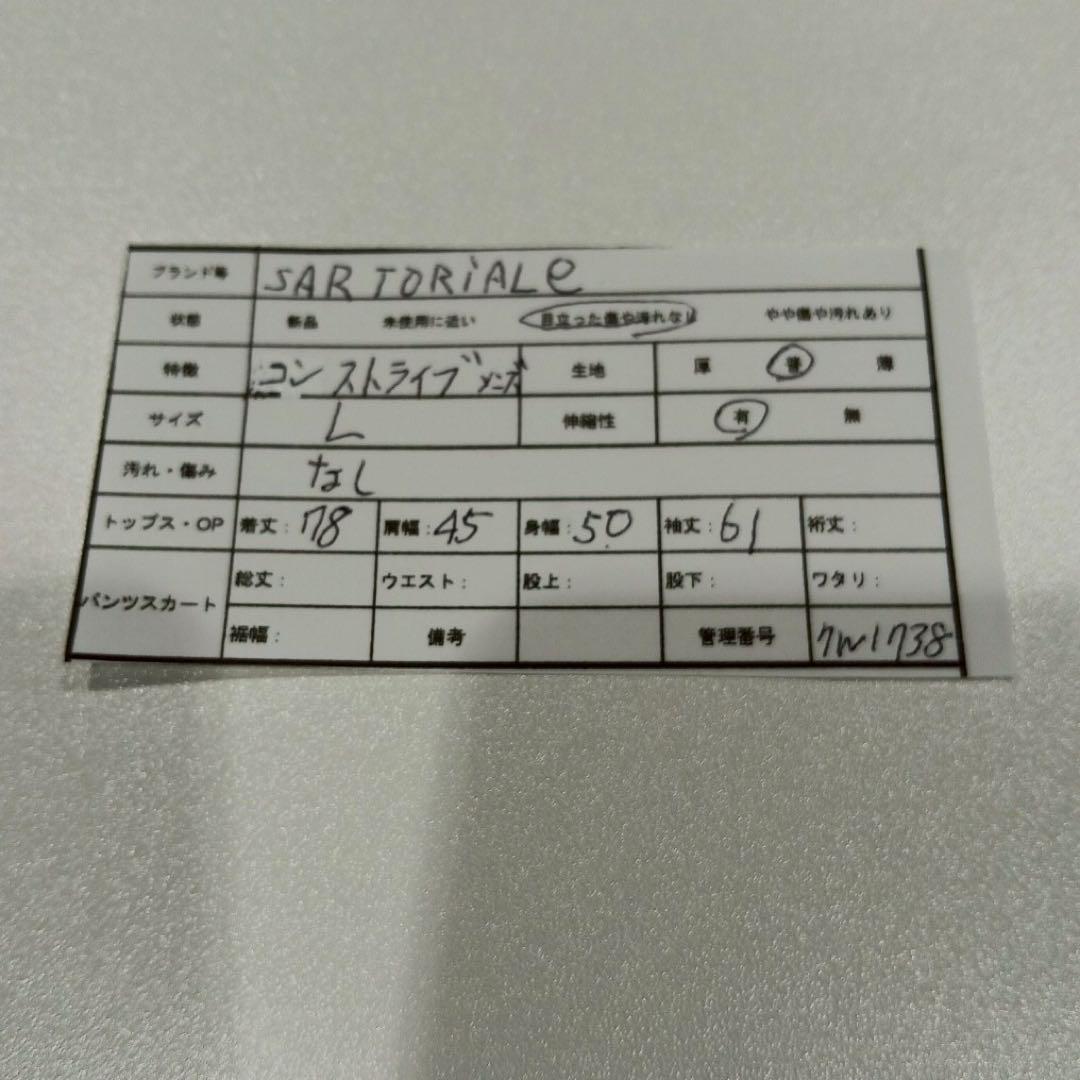 ブランド等 SARTORIALe
状態 新品 未使用に近い 目立った傷や汚れなし やや傷や汚れあり
特徴 コン ストライブ メンズ 生地 厚 普 薄
サイズ L 伸縮性 有 無
汚れ・傷み なし
トップス・OP 着丈：78 肩幅：45 身幅：50 袖丈：61 裄丈：
パンツスカート 総丈： ウエスト： 股上： 股下： ワタリ：
裾幅： 備考 管理番号 7W1738